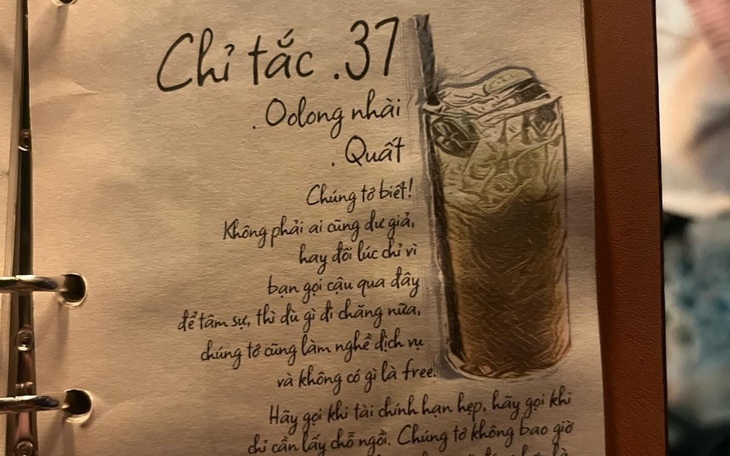 Chỉ tắc .37
. Oolong nhài
. Quất
Chúng tớ biết!
Không phải ai cũng dư giả,
hay đôi lúc chỉ vì
bạn gọi cậu qua đây
để tâm sự, thì dù gì đi chăng nữa,
chúng tớ cũng làm nghề dịch vụ
và không có gì là free.
Hãy gọi khi tài chính hạn hẹp, hãy gọi khi
chỉ cần lấy chỗ ngồi. Chúng tớ không bao giờ